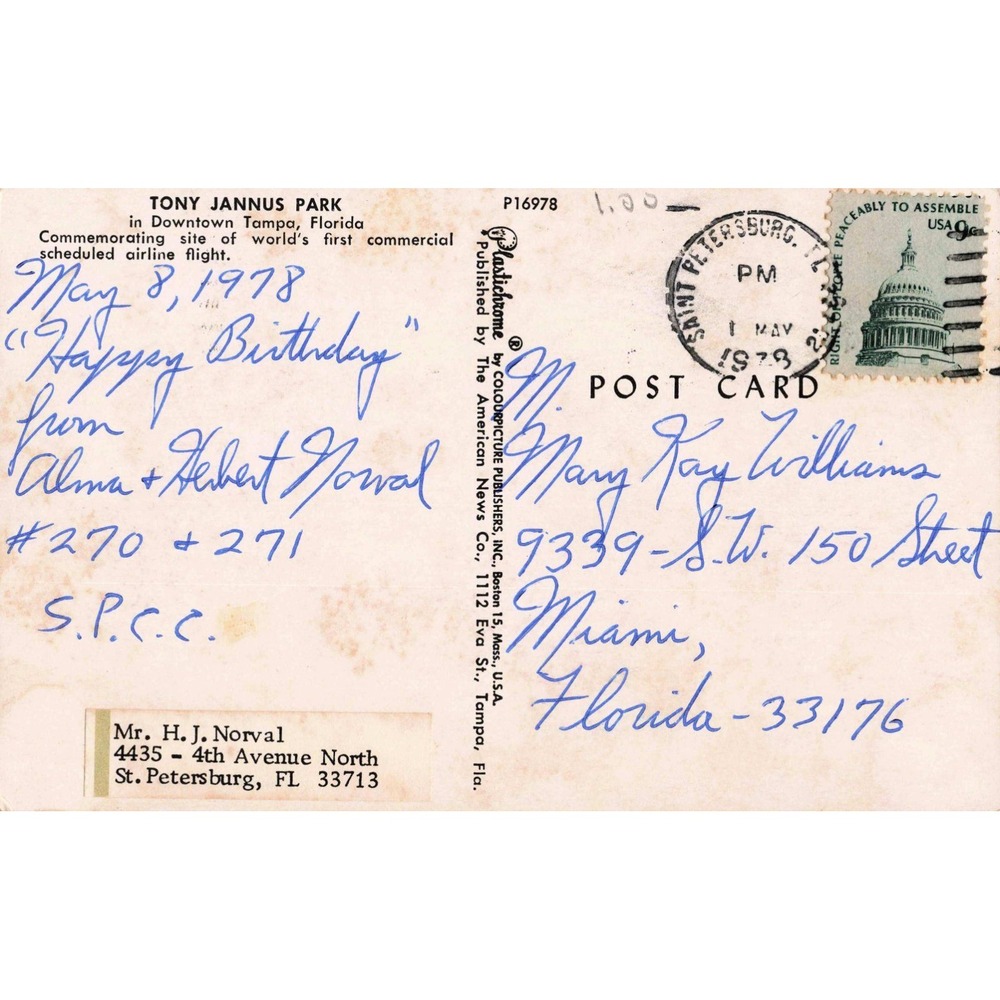 TONY JANNUS PARK
in Downtown Tampa, Florida
Commemorating site of world's first commercial
scheduled airline flight.
May 8, 1978
"Happy Birthday"
from
Alma + Hebert Norval
#270 + 271
S.P.C.C.
Mr. H. J. Norval
4435 - 4th Avenue North
St. Petersburg, FL 33713
P16978
Plastichrome ® by COLOURPICTURE PUBLISHERS, INC., Boston 15, Mass., U.S.A.
Published by The American News Co., 1112 Eva St., Tampa, Fla.
1.00
SAINT PETERSBURG, FL
PM
1 MAY
1978
PEACEABLY TO ASSEMBLE
USA 9c
POST CARD
M.
Mary Kay Williams
9339-S.W. 150 Street
Miami,
Florida-33176